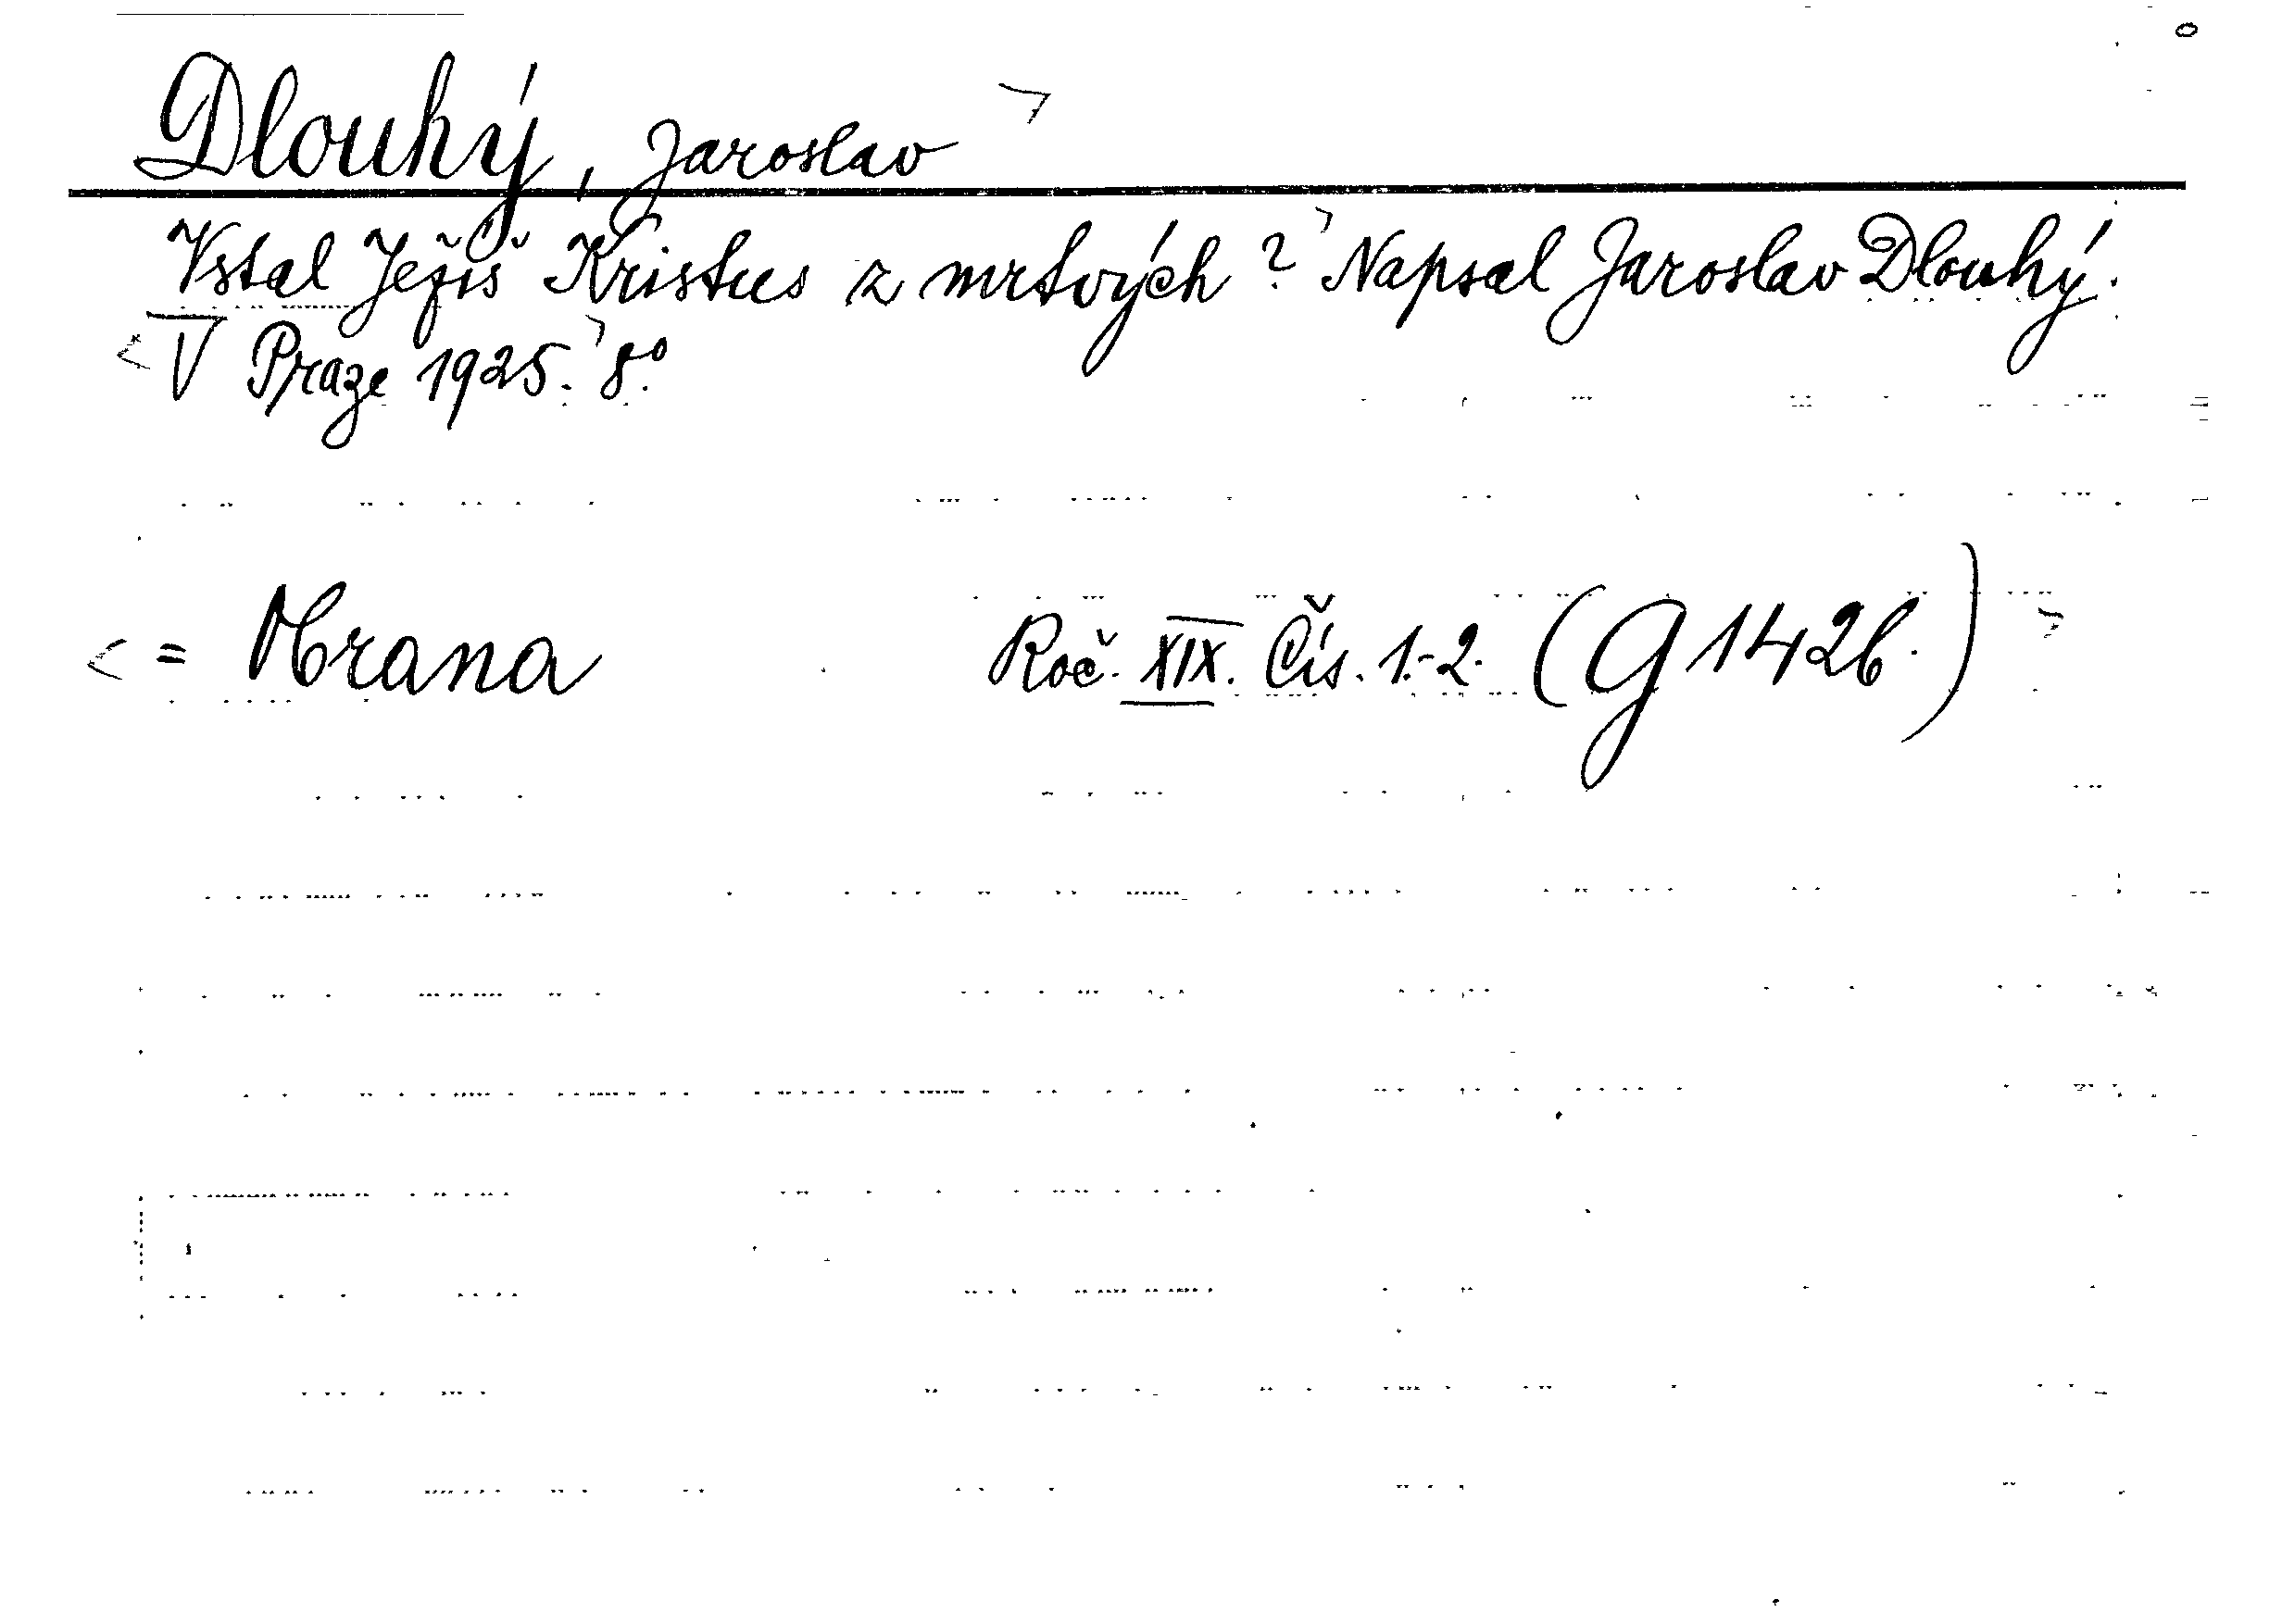 Dlouhý, Jaroslav
Vstal Ježiš Kristus z mrtvých? Napsal Jaroslav Dlouhý.
V Praze 1925. 8º.
= Hrana Roč. XIX. Čís. 1.-2. (G 1426.)